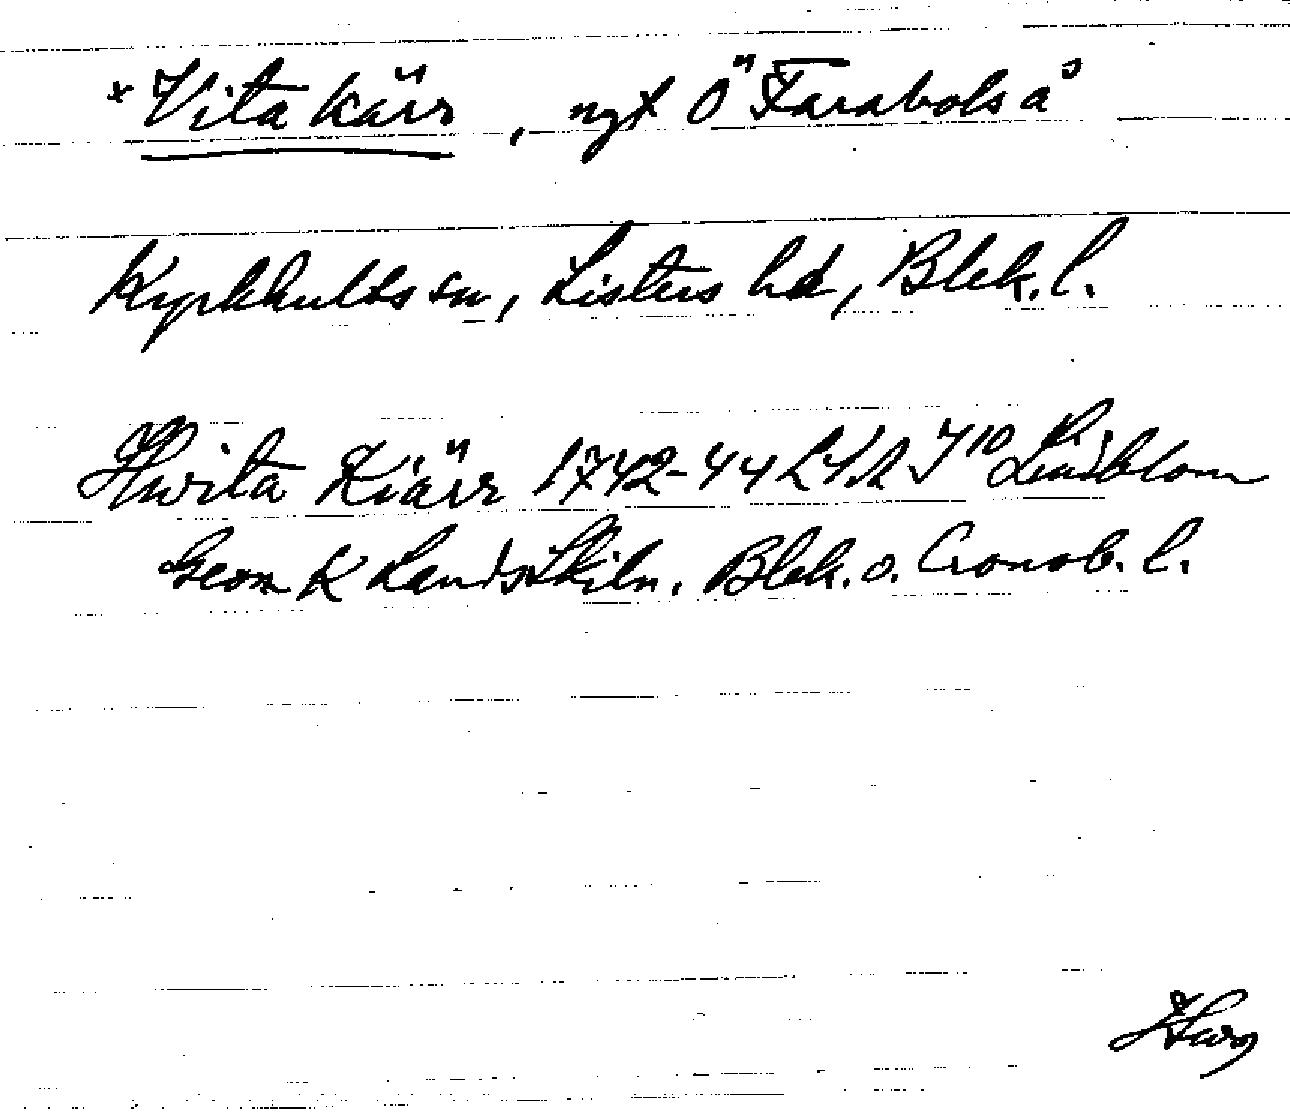 * Vita kärr, ngt Ö Farabolså
Kyrkhults sn, Listers hd, Blek. l.
Hwita Kiärr 1742-44 LSA I 10 Lindblom
Geom K LandsSkiln. Blek. o. Cronob. l.